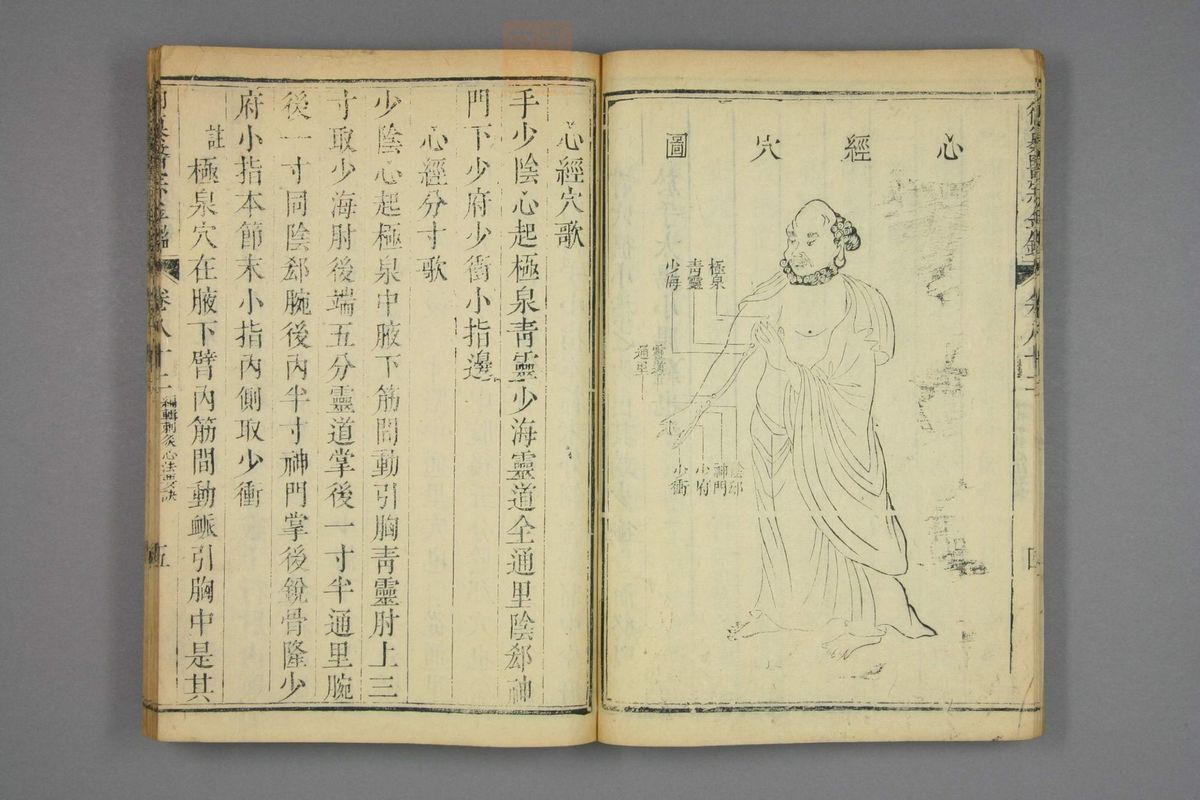 心經穴圖
極泉
青靈
少海
靈道
通里
陰郄
神門
少府
少衝
卷八十二
四
心經穴歌
手少陰心起極泉青靈少海靈道全通里陰郄神
門下少府少衝小指邊
心經分寸歌
少陰心起極泉中腋下筋間動引胸青靈肘上三
寸取少海肘後端五分靈道掌後一寸半通里腕
後一寸同陰郄腕後內半寸神門掌後銳骨隆少
府小指本節末小指內側取少衝
註極泉穴在腋下臂內筋間動脈引胸中是其
卷八十二
編輯刺灸心法要訣
五